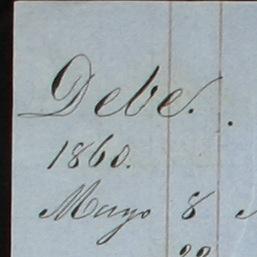 Debe.
1860.
Mayo 8
22